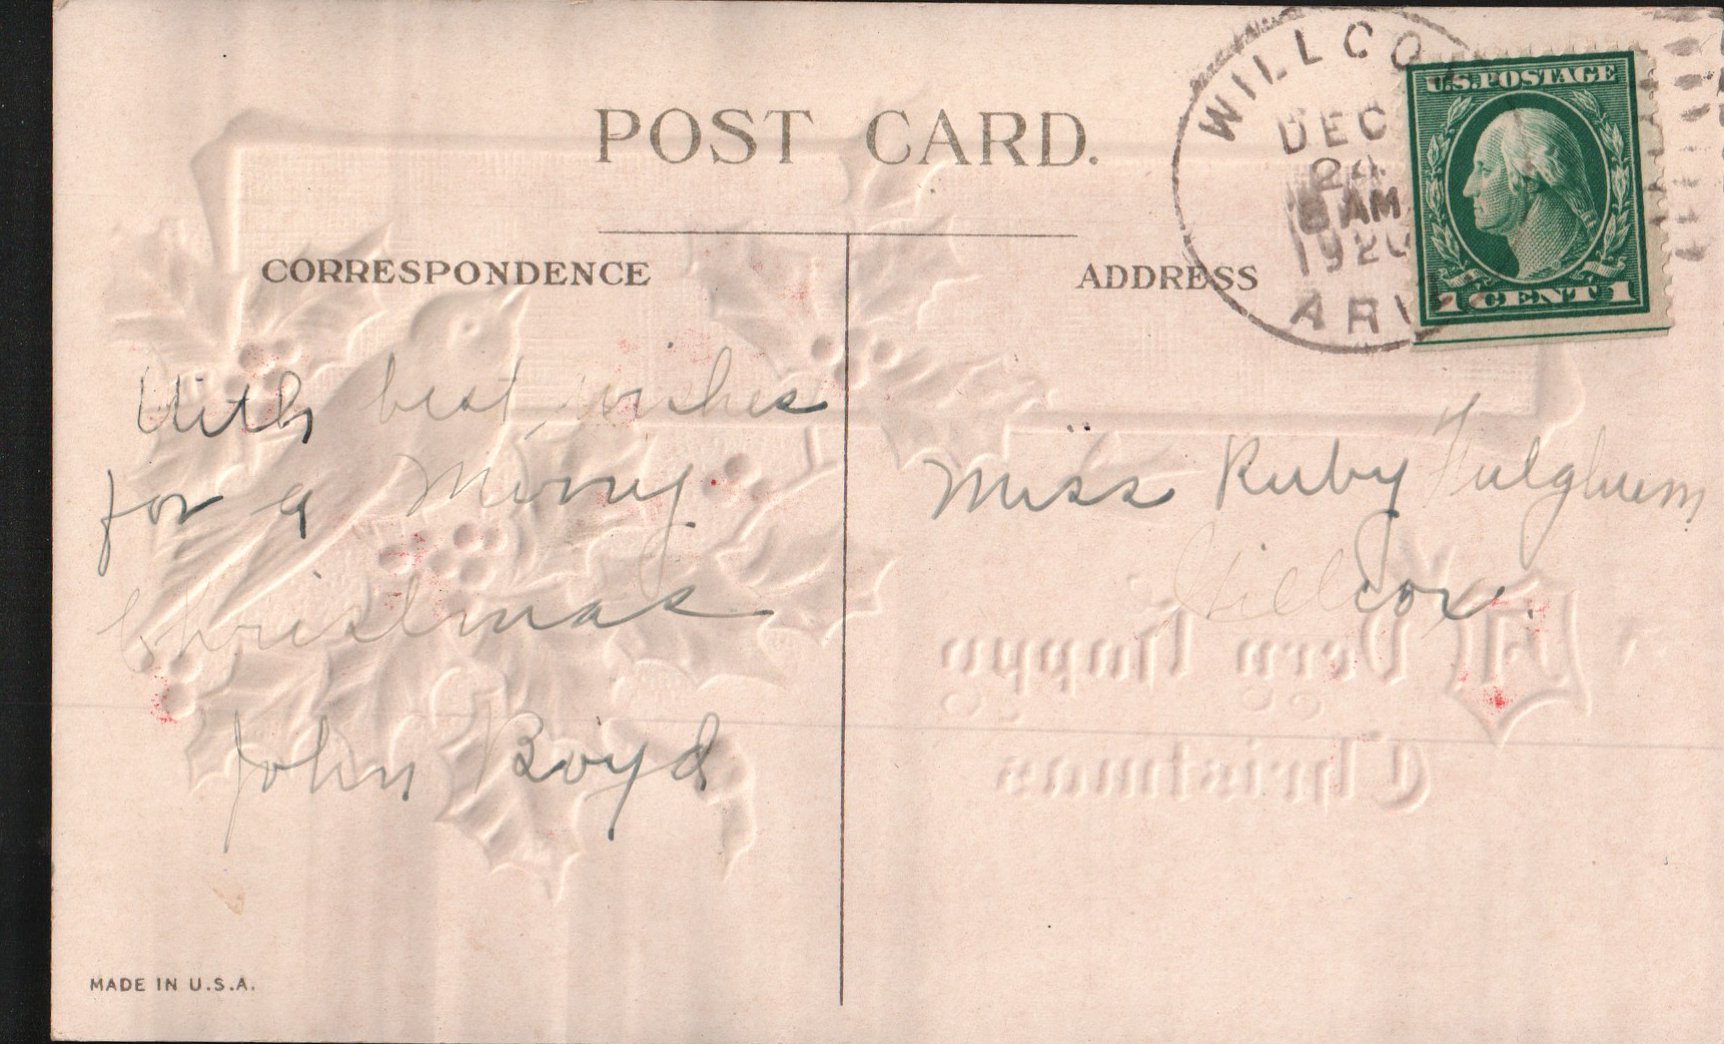 POST CARD.
CORRESPONDENCE
ADDRESS
WILLCO
DEC
24
8 AM
1920
ARI
U.S. POSTAGE
1 CENT 1
With best wishes
for a Merry
Christmas
John Boyd
Miss Ruby Fulghum
Willcox.
A Very Happy
Christmas
MADE IN U.S.A.